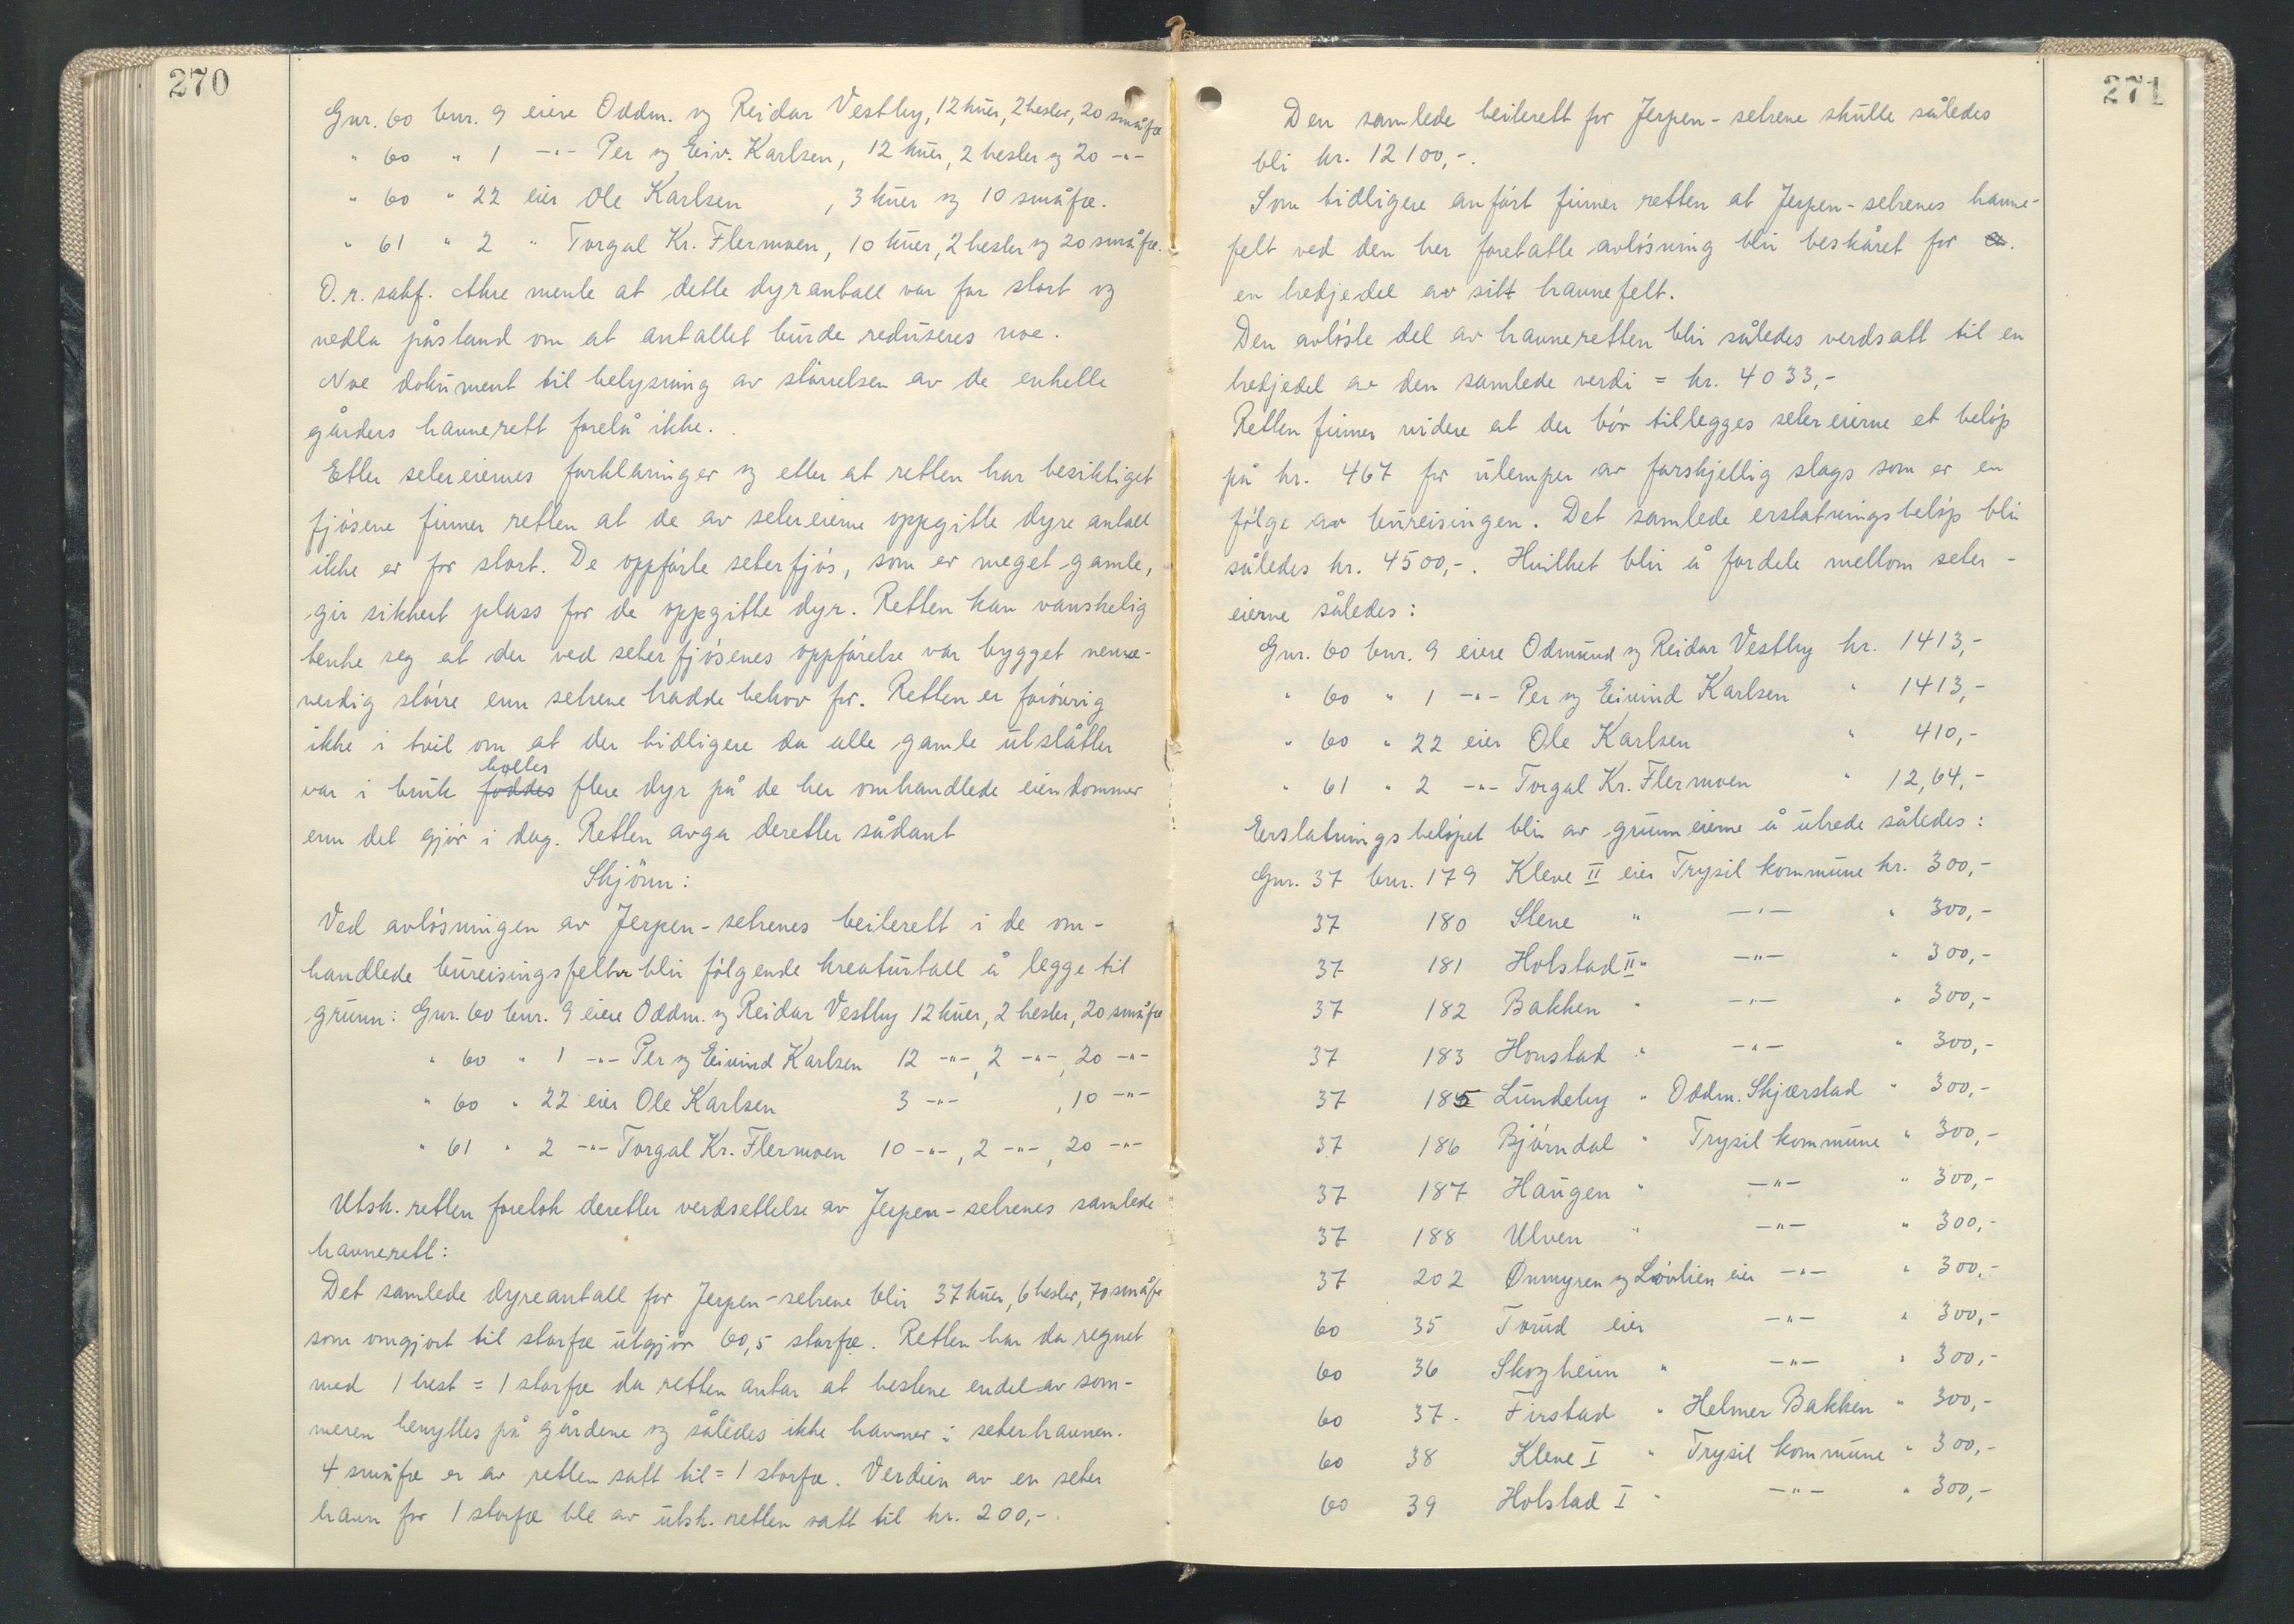 270
Gnr. 60 bnr. 9 eiere Oddm. og Reidar Vestby, 12 kuer, 2 hester, 20 småfe
" 60 " 1 -"- Per og Eiv. Karlsen, 12 kuer, 2 hester og 20 -"-
" 60 " 22 eier Ole Karlsen , 3 kuer og 10 småfe.
" 61 " 2 " Torgal Kr. Flermoen, 10 kuer, 2 hester og 20 småfe.
O.r.sakf. Akre mente at dette dyrantall var for stort og
nedla påstand om at antallet burde reduseres noe.
Noe dokument til belysning av størrelsen av de enkelte
gårders havnerett forelå ikke.
Etter setereiernes forklaringer og etter at retten har besiktiget
fjøsene finner retten at de av setereierne oppgitte dyre antall
ikke er for stort. De oppførte seterfjøs, som er meget gamle,
gir sikkert plass for de oppgitte dyr. Retten kan vanskelig
tenke seg at der ved seterfjøsenes oppførelse var bygget nevne-
verdig større enn setrene hadde behov for. Retten er forøvrig
ikke i tvil om at der tidligere da alle gamle utslåtter
var i bruk foddes holtes flere dyr på de her omhandlede eiendommer
enn det gjør i dag. Retten avga deretter sådant
Skjønn:
Ved avløsningen av Jerpen-setrenes beiterett i de om-
handlede bureisingsfelter blir følgende kreaturtall å legge til
grunn: Gnr. 60 bnr. 9 eiere Oddm. og Reidar Vestby 12 kuer, 2 hester, 20 småfe
" 60 " 1 -"- Per og Eivind Karlsen 12 -"-, 2 -"-, 20 -"-
" 60 " 22 eier Ole Karlsen 3 -"- , 10 -"-
" 61 " 2 -"- Torgal Kr. Flermoen 10 -"-, 2 -"-, 20 -"-
Utsk. retten foretok deretter verdsettelse av Jerpen-setrenes samlede
havnerett:
Det samlede dyreantall for Jerpen-setrene blir 37 kuer, 6 hester, 70 småfe
som omgjort til storfe utgjør 60,5 storfe. Retten har da regnet
med 1 hest = 1 storfe da retten antar at hestene endel av som-
meren benyttes på gårdene og således ikke havner i seterhavnen.
4 småfe er av retten satt til = 1 storfe. Verdien av en seter
havn for 1 storfe ble av utsk. retten satt til kr. 200,-.
271
Den samlede beiterett for Jerpen-setrene skulle således
bli kr. 12100,-.
Som tidligere anført finner retten at Jerpen-setrenes havne-
felt ved den her foretatte avløsning blir beskåret for
en tredjedel av sitt havnefelt.
Den avløste del av havneretten blir således verdsatt til en
tredjedel av den samlede verdi = kr. 4033,-
Retten finner videre at der bør tillegges setereierne et beløp
på kr. 467 for ulemper av forskjellig slags som er en
følge av bureisingen. Det samlede erstatningsbeløp blir
således kr. 4500,-. Hvilket blir å fordele mellom seter-
eierne således:
Gnr. 60 bnr. 9 eiere Odmund og Reidar Vestby kr. 1413,-
" 60 " 1 -"- Per og Eivind Karlsen " 1413,-
" 60 " 22 eier Ole Karlsen " 410,-
" 61 " 2 -"- Torgal Kr. Flermoen " 12,64,-
Erstatningsbeløpet blir av grunneierne å utrede således:
Gnr. 37 bnr. 179 Kleve II eier Trysil kommune kr. 300,-
37 180 Stene " -"- " 300,-
37 181 Holstad II " -"- " 300,-
37 182 Bakken " -"- " 300,-
37 183 Honstad " -"- " 300,-
37 185 Lundeby " Oddm. Skjærstad " 300,-
37 186 Bjørndal " Trysil kommune " 300,-
37 187 Haugen " -"- " 300,-
37 188 Ulven " -"- " 300,-
37 202 Ønmyren og Løvlien eier -"- " 300,-
60 35 Torud eier -"- " 300,-
60 36 Skogheim " -"- " 300,-
60 37. Firstad " Helmer Bakken " 300,-
60 38 Kleve I " Trysil kommune " 300,-
60 39 Holstad I " -"- " 300,-